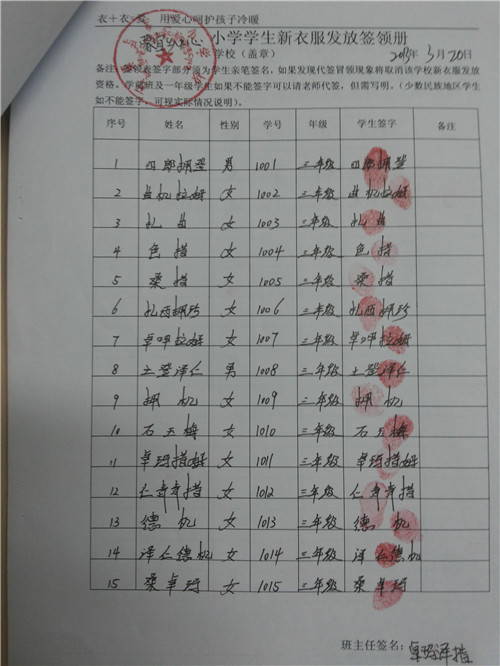 衣+衣=爱 用爱心呵护孩子冷暖
小学学生新衣服发放签领册
学校(盖章) 3月20日
备注:签领表签字部分须为学生亲笔签名,如果发现代签冒领现象将取消该学校新衣服发放
资格。学前班及一年级学生如果不能签字可以请老师代签,但需写明。(少数民族地区学生
如不能签字,可视实际情况说明)。
序号 姓名 性别 学号 年级 学生签字 备注
1 四郎拥登 男 1001 三年级 四郎拥登
2 女 1002 三年级
3 女 1003 三年级
4 色措 女 1004 三年级 色措
5 桑措 女 1005 三年级 桑措
6 扎西拥珍 女 1006 三年级 扎西拥珍
7 女 1007 三年级
8 土登泽仁 男 1008 三年级 土登泽仁
9 拥机 女 1009 三年级 拥机
10 石玉梅 女 1010 三年级 石玉梅
11 卓玛措姆 女 1011 三年级 卓玛措姆
12 女 1012 三年级
13 德机 女 1013 三年级 德机
14 泽仁德机 女 1014 三年级 泽仁德机
15 桑卓玛 女 1015 三年级 桑卓玛
班主任签名: